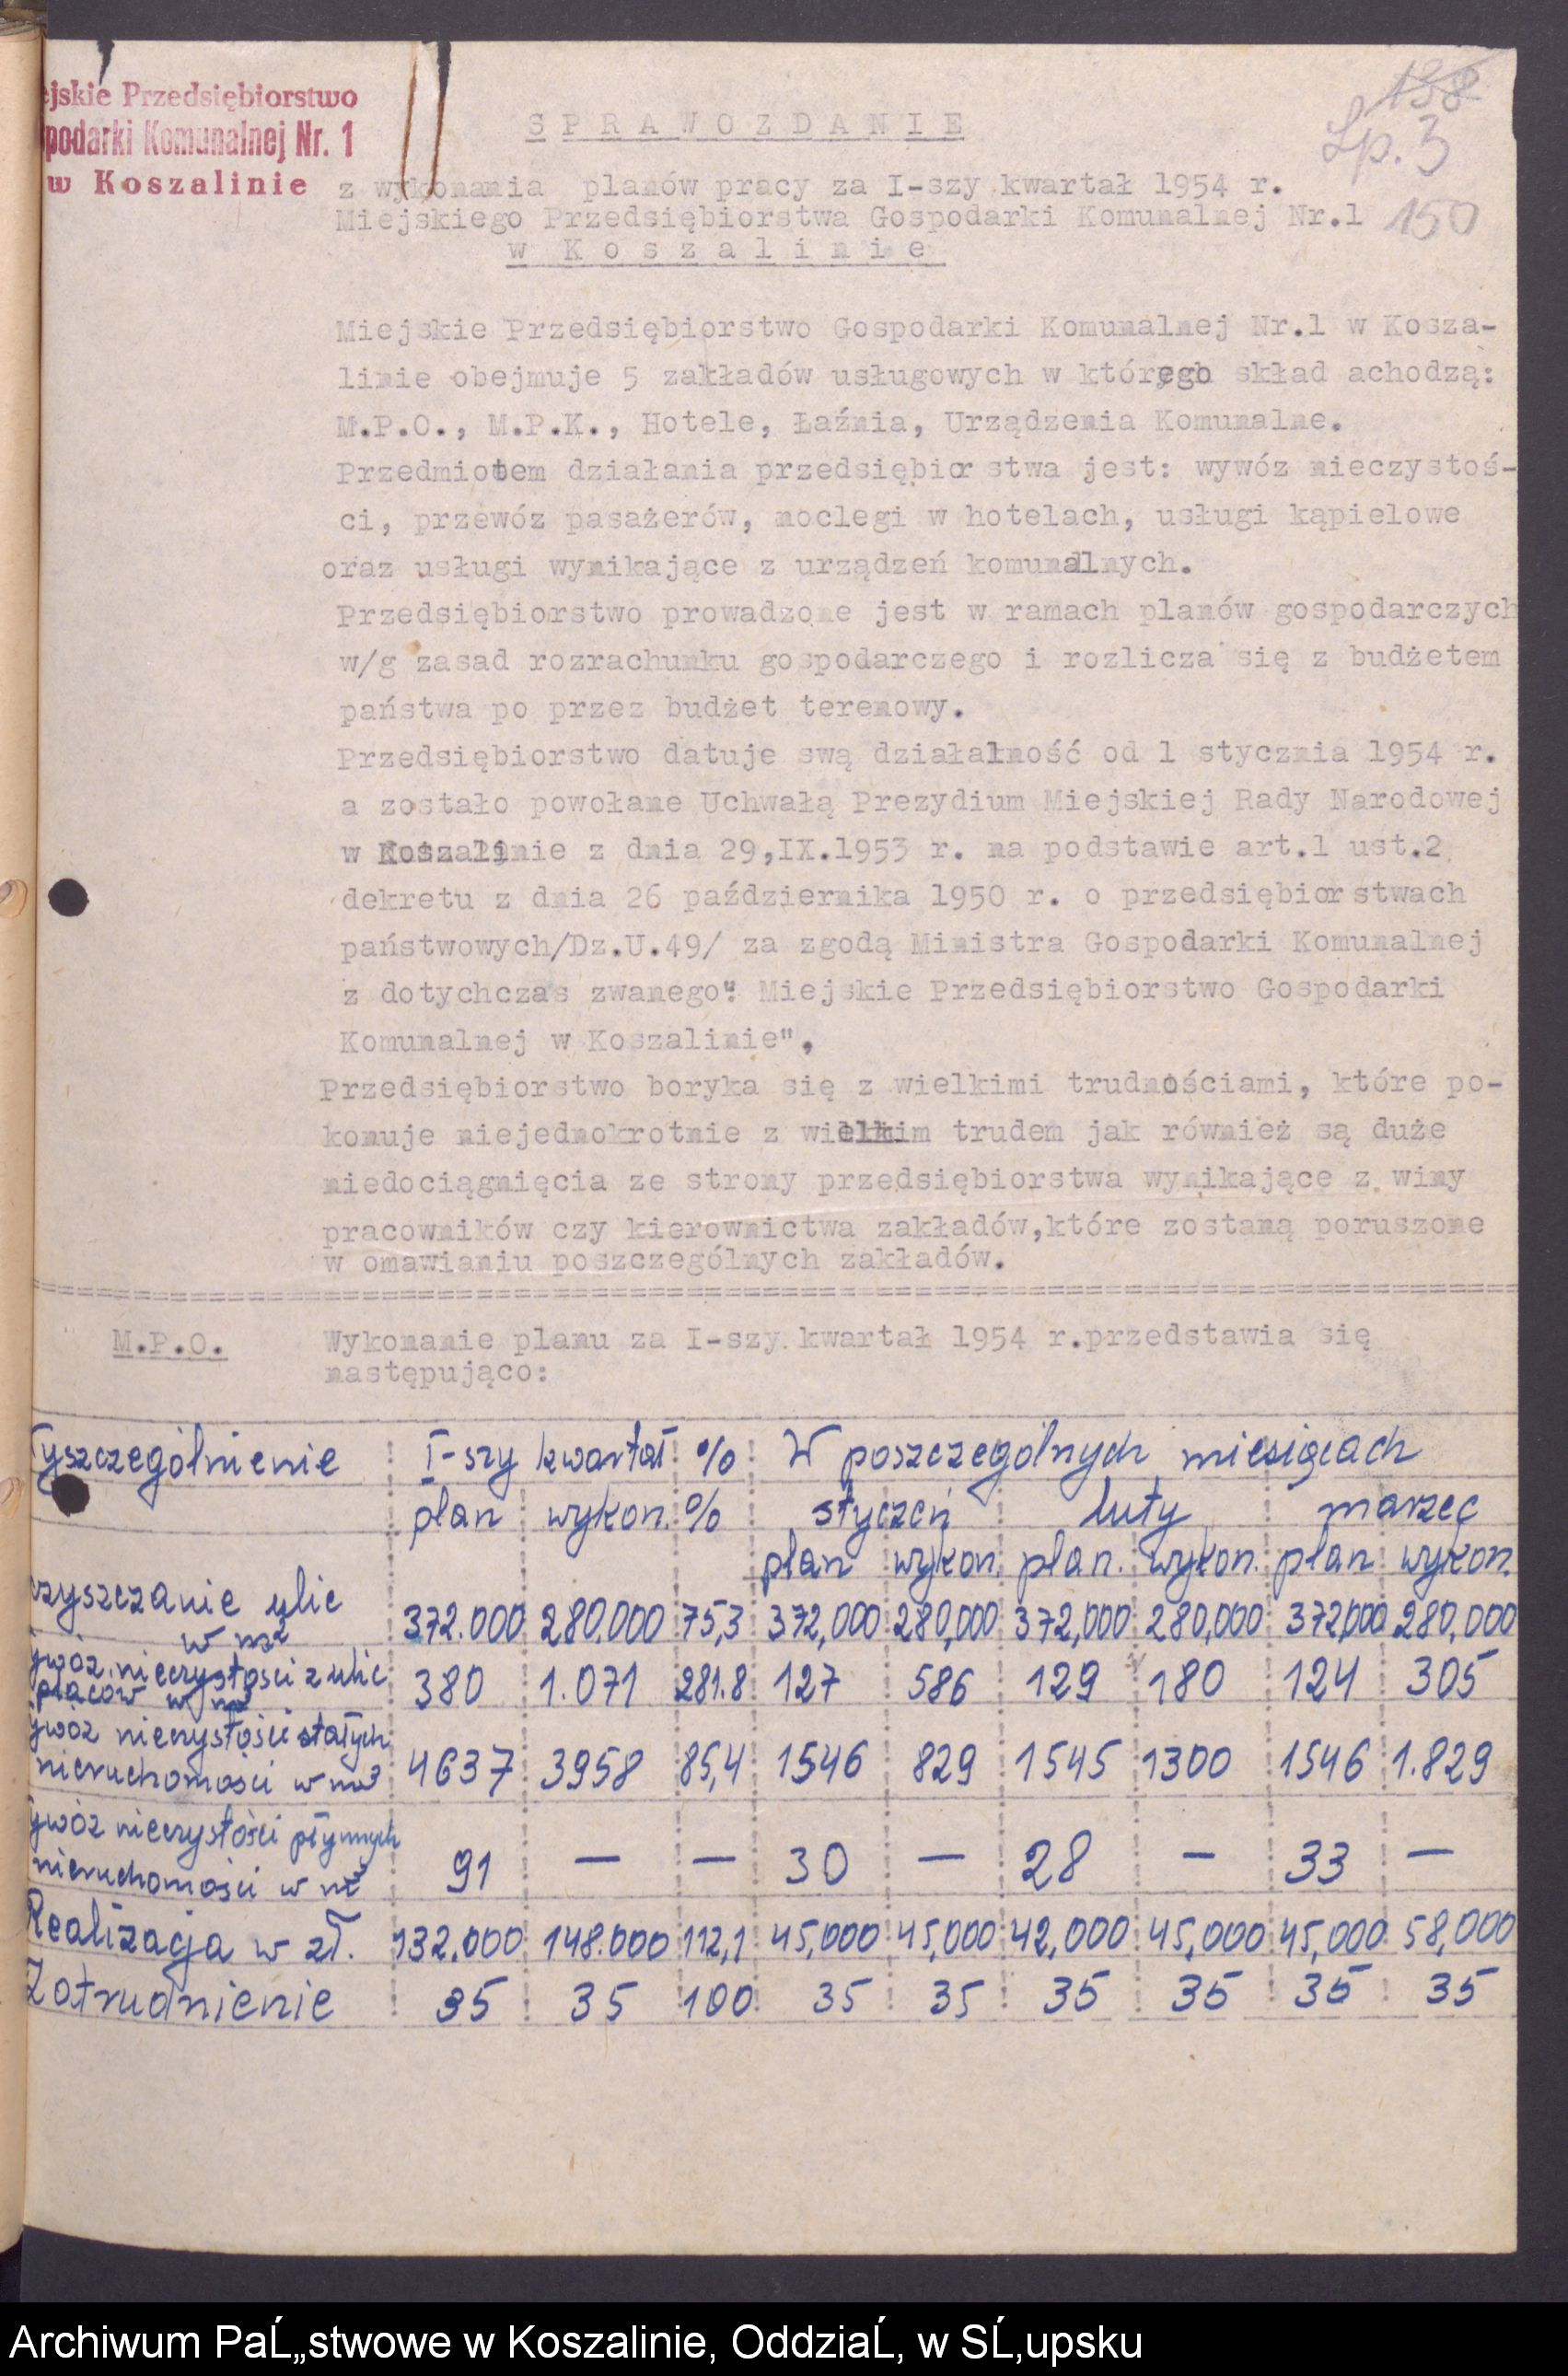 ejskie Przedsiębiorstwo
podarki Komunalnej Nr. 1
w Koszalinie
138
Lp. 3
150
SPRAWOZDANIE
z wykonania planów pracy za I-szy kwartał 1954 r.
Miejskiego Przedsiębiorstwa Gospodarki Komunalnej Nr.1
w Koszalinie
Miejskie Przedsiębiorstwo Gospodarki Komunalnej Nr.1 w Kosza-
linie obejmuje 5 zakładów usługowych w którego skład achodzą:
M.P.O., M.P.K., Hotele, Łaźnia, Urządzenia Komunalne.
Przedmiotem działania przedsiębior stwa jest: wywóz nieczystoś-
ci, przewóz pasażerów, noclegi w hotelach, usługi kąpielowe
oraz usługi wynikające z urządzeń komunalnych.
Przedsiębiorstwo prowadzone jest w ramach planów gospodarczych
w/g zasad rozrachunku gospodarczego i rozlicza się z budżetem
państwa po przez budżet terenowy.
Przedsiębiorstwo datuje swą działalność od 1 stycznia 1954 r.
a zostało powołane Uchwałą Prezydium Miejskiej Rady Narodowej
w Koszalinie z dnia 29,IX.1953 r. na podstawie art.1 ust.2
dekretu z dnia 26 października 1950 r. o przedsiębior stwach
państwowych/Dz.U.49/ za zgodą Ministra Gospodarki Komunalnej
z dotychczas zwanego": Miejskie Przedsiębiorstwo Gospodarki
Komunalnej w Koszalinie",
Przedsiębiorstwo boryka się z wielkimi trudnościami, które po-
konuje niejednokrotnie z wielkim trudem jak również są duże
niedociągnięcia ze strony przedsiębiorstwa wynikające z winy
pracowników czy kierownictwa zakładów,które zostaną poruszone
w omawianiu poszczególnych zakładów.
M.P.O. Wykonanie planu za I-szy kwartał 1954 r.przedstawia się
następująco:
yszczególnienie I-szy kwartał % W poszczególnych miesiącach
plan wykon. % styczeń luty marzec
plan wykon. plan. wykon. plan wykon.
czyszczanie ulic
w m2 372.000 280.000 75,3 372,000 280,000 372,000 280,000 372,000 280,000
ywóz nieczystości z ulic
placów w m3 380 1.071 281.8 127 586 129 180 124 305
ywóz nieczystości stałych
nieruchomości w m3 4637 3958 85,4 1546 829 1545 1300 1546 1.829
ywóz nieczystości płynnych
nieruchomości w m3 91 — — 30 — 28 — 33 —
Realizacja w zł. 132.000 148.000 112,1 45,000 45,000 42,000 45,000 45,000 58,000
Zatrudnienie 35 35 100 35 35 35 35 35 35
Archiwum PaĹ„stwowe w Koszalinie, OddziaĹ‚ w SĹ‚upsku